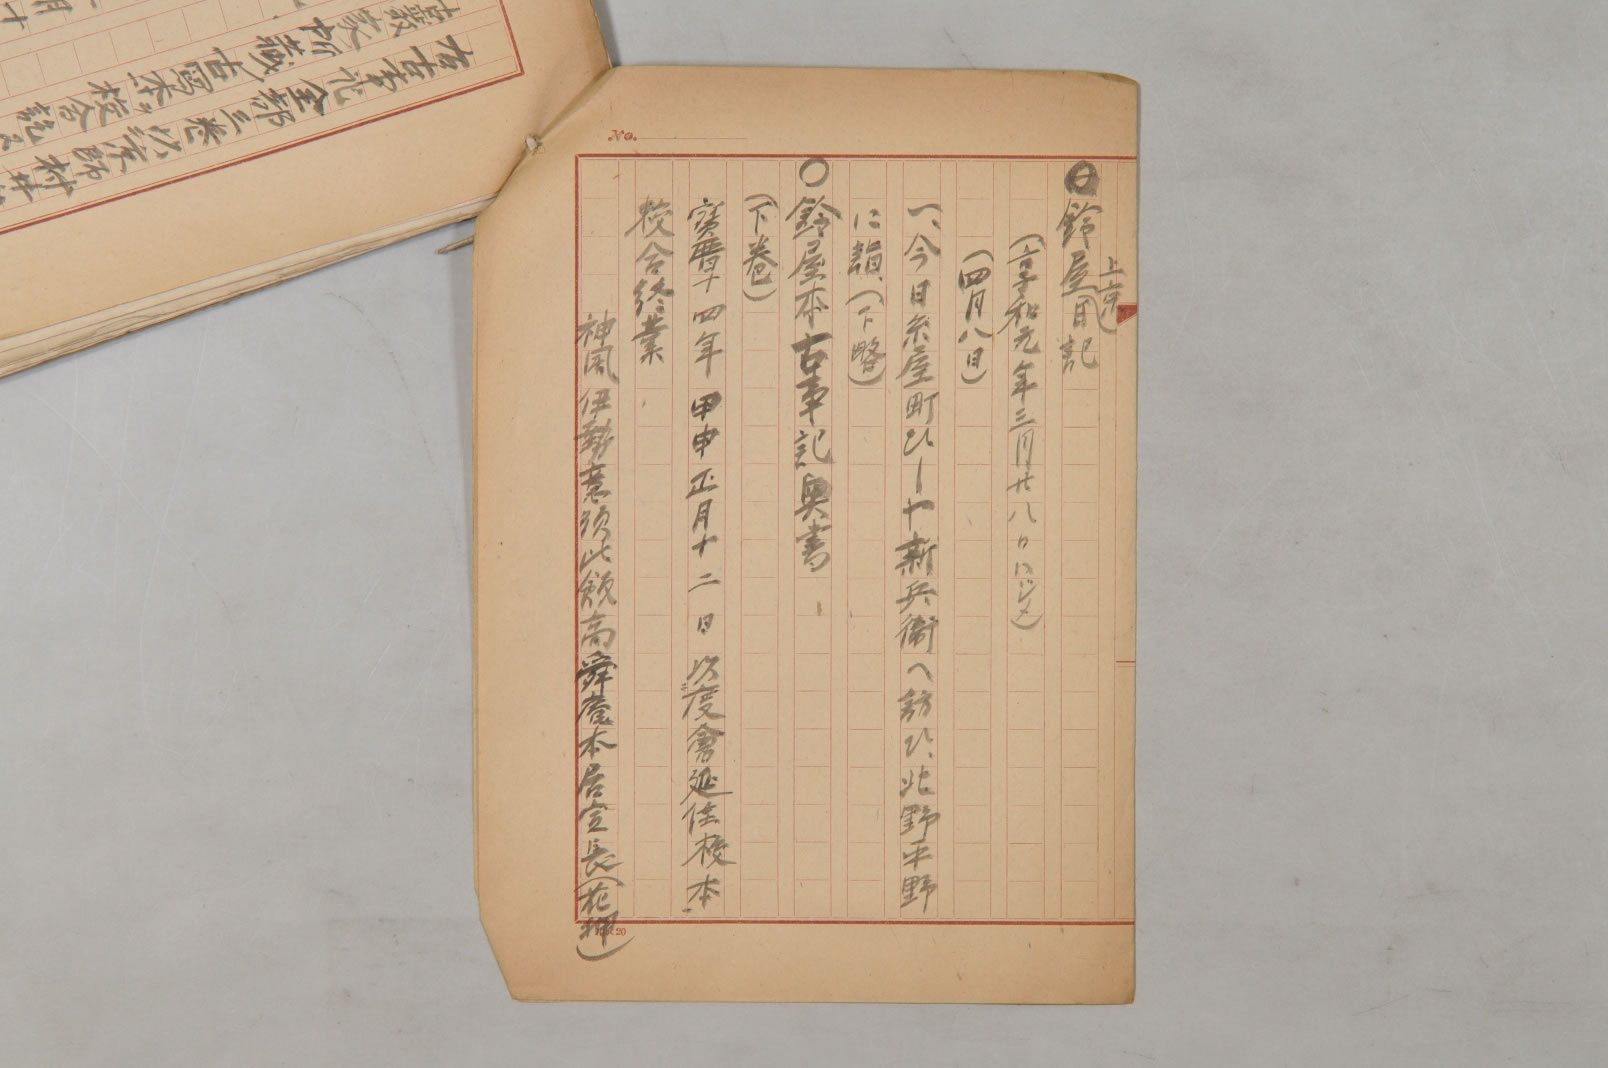 No.
〇鈴屋上京日記
(享和元年三月廿八日ハジメ)
(四月八日)
一、今日糸屋町ひしや新兵衛へ訪ひ、北野平野
に詣、(下略)
〇鈴屋本古事記奥書
(下巻)
寳暦十四年甲申正月十二日以度會延佳校本
校合終業
神風伊勢意須比飯高舜菴本居宣長(花押)
右古事記全部三巻以京師村井
古巌家所蔵古寫本校合訖